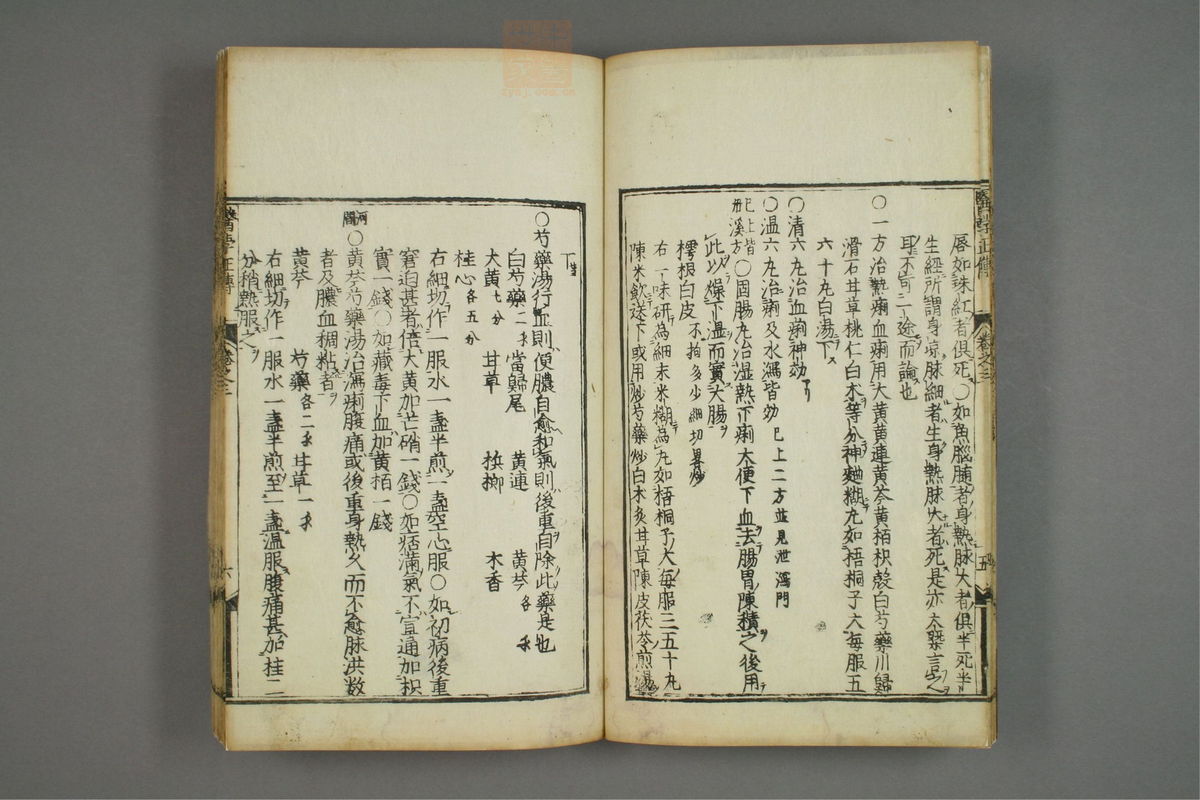 唇如珠紅者俱死○如魚腦髓者身熱脉大者俱半死半
生經所謂身凉脉細者生身熱脉大者死是亦大槩言之
耳不可一途而論也
○一方治熱痢血痢用大黄黄連黄芩黄栢枳殻白芍藥川歸
滑石甘草桃仁白朮等分神麯糊丸如梧桐子大每服五
六十丸白湯下
○清六丸治血痢神効
○温六丸治痢及水瀉皆効 已上二方並見泄瀉門
已上皆丹溪方○固腸丸治湿熱下痢大便下血去腸胃陳積之後用
此以燥下湿而實大腸
樗根白皮 不拘多少細切畧炒
右一味研為細末米糊為丸如梧桐子大每服三五十丸
陳米飲送下或用炒芍藥炒白朮炙甘草陳皮茯苓煎湯
下
○芍藥湯行血則便膿自愈和氣則後重自除此藥是也
白芍藥二錢 當歸尾 黄連 黄芩各 錢
大黄七分 甘草 梹榔 木香
桂心各五分
右細切作一服水一盞半煎一盞空心服○如初病後重
窘迫甚者倍大黄加芒硝一錢○如痞滿氣不宣通加枳
實一錢○如藏毒下血加黄栢一錢
河間○黄芩芍藥湯治瀉痢腹痛或後重身熱久而不愈脉洪数
者及膿血稠粘者
黄芩 芍藥各二錢 甘草一錢
右細切作一服水一盞半煎至一盞温服腹痛甚加桂二
分稍熱服之